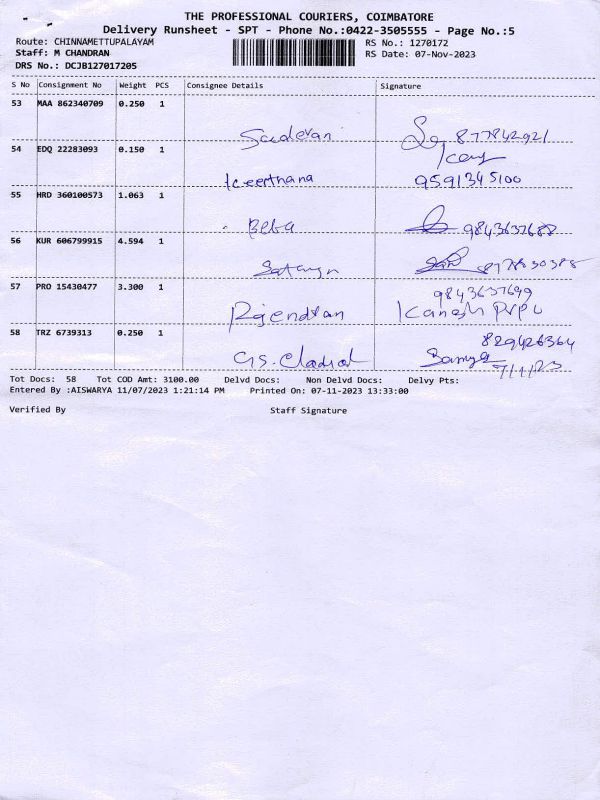 THE PROFESSIONAL COURIERS, COIMBATORE
Delivery Runsheet - SPT - Phone No.:0422-3505555 - Page No.:5
Route: CHINNAMETTUPALAYAM RS No.: 1270172
Staff: M CHANDRAN RS Date: 07-Nov-2023
DRS No.: DCJB127017205
S No Consignment No Weight PCS Consignee Details Signature
53 MAA 862340709 0.250 1
877842921
54 EDQ 22283093 0.150 1
Keerthana 9591345100
55 HRD 360100573 1.063 1
Beba 9843637688
56 KUR 606799915 4.594 1
877830385
57 PRO 15430477 3.300 1
9843637699
Rajendran
58 TRZ 6739313 0.250 1
829426364
7/11/23
Tot Docs: 58 Tot COD Amt: 3100.00 Delvd Docs: Non Delvd Docs: Delvy Pts:
Entered By :AISWARYA 11/07/2023 1:21:14 PM Printed On: 07-11-2023 13:33:00
Verified By Staff Signature